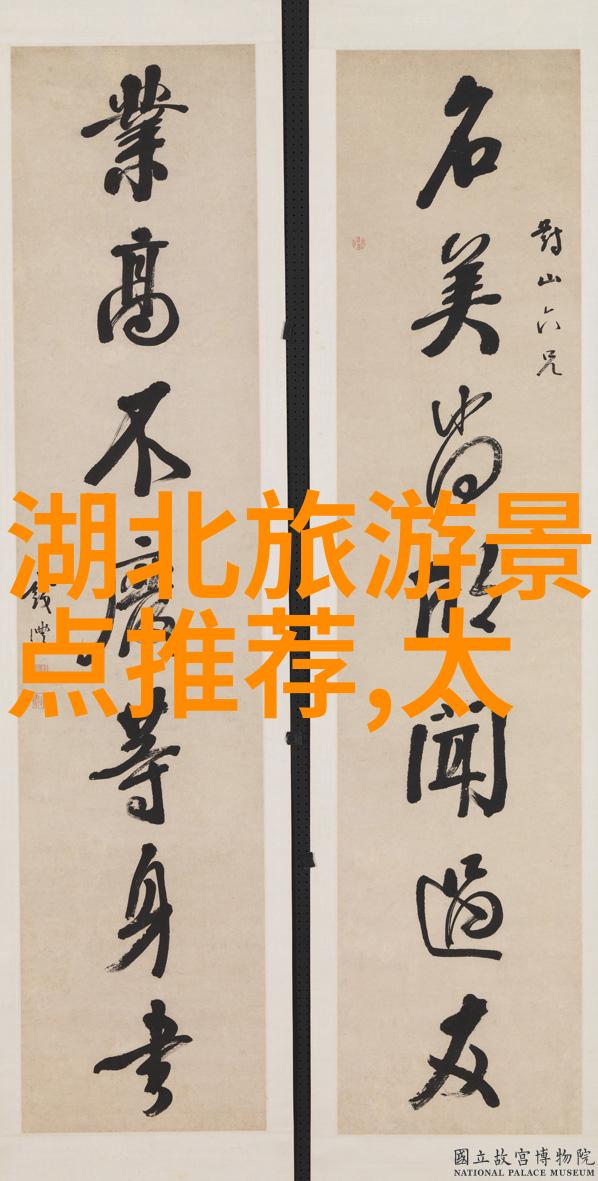 對山六兄
名美尚欣聞過友
業高不廢等身書
錢灃
湖北旅游景
点推荐,太
國立故宮博物院
NATIONAL PALACE MUSEUM